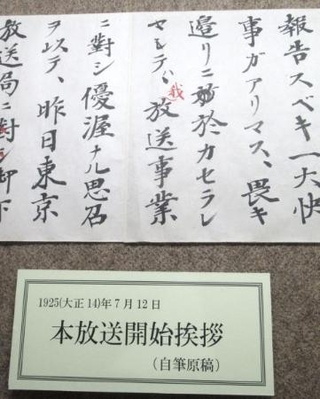 報告スベキ一大快
事ガアリマス、畏キ
邊リニ於カセラレ
マシテハ我放送事業
ニ對シ優渥ナル思召
ヲ以テ、昨日東京
放送局ニ對シ御下
1925(大正14)年7月12日
本放送開始挨拶
(自筆原稿)